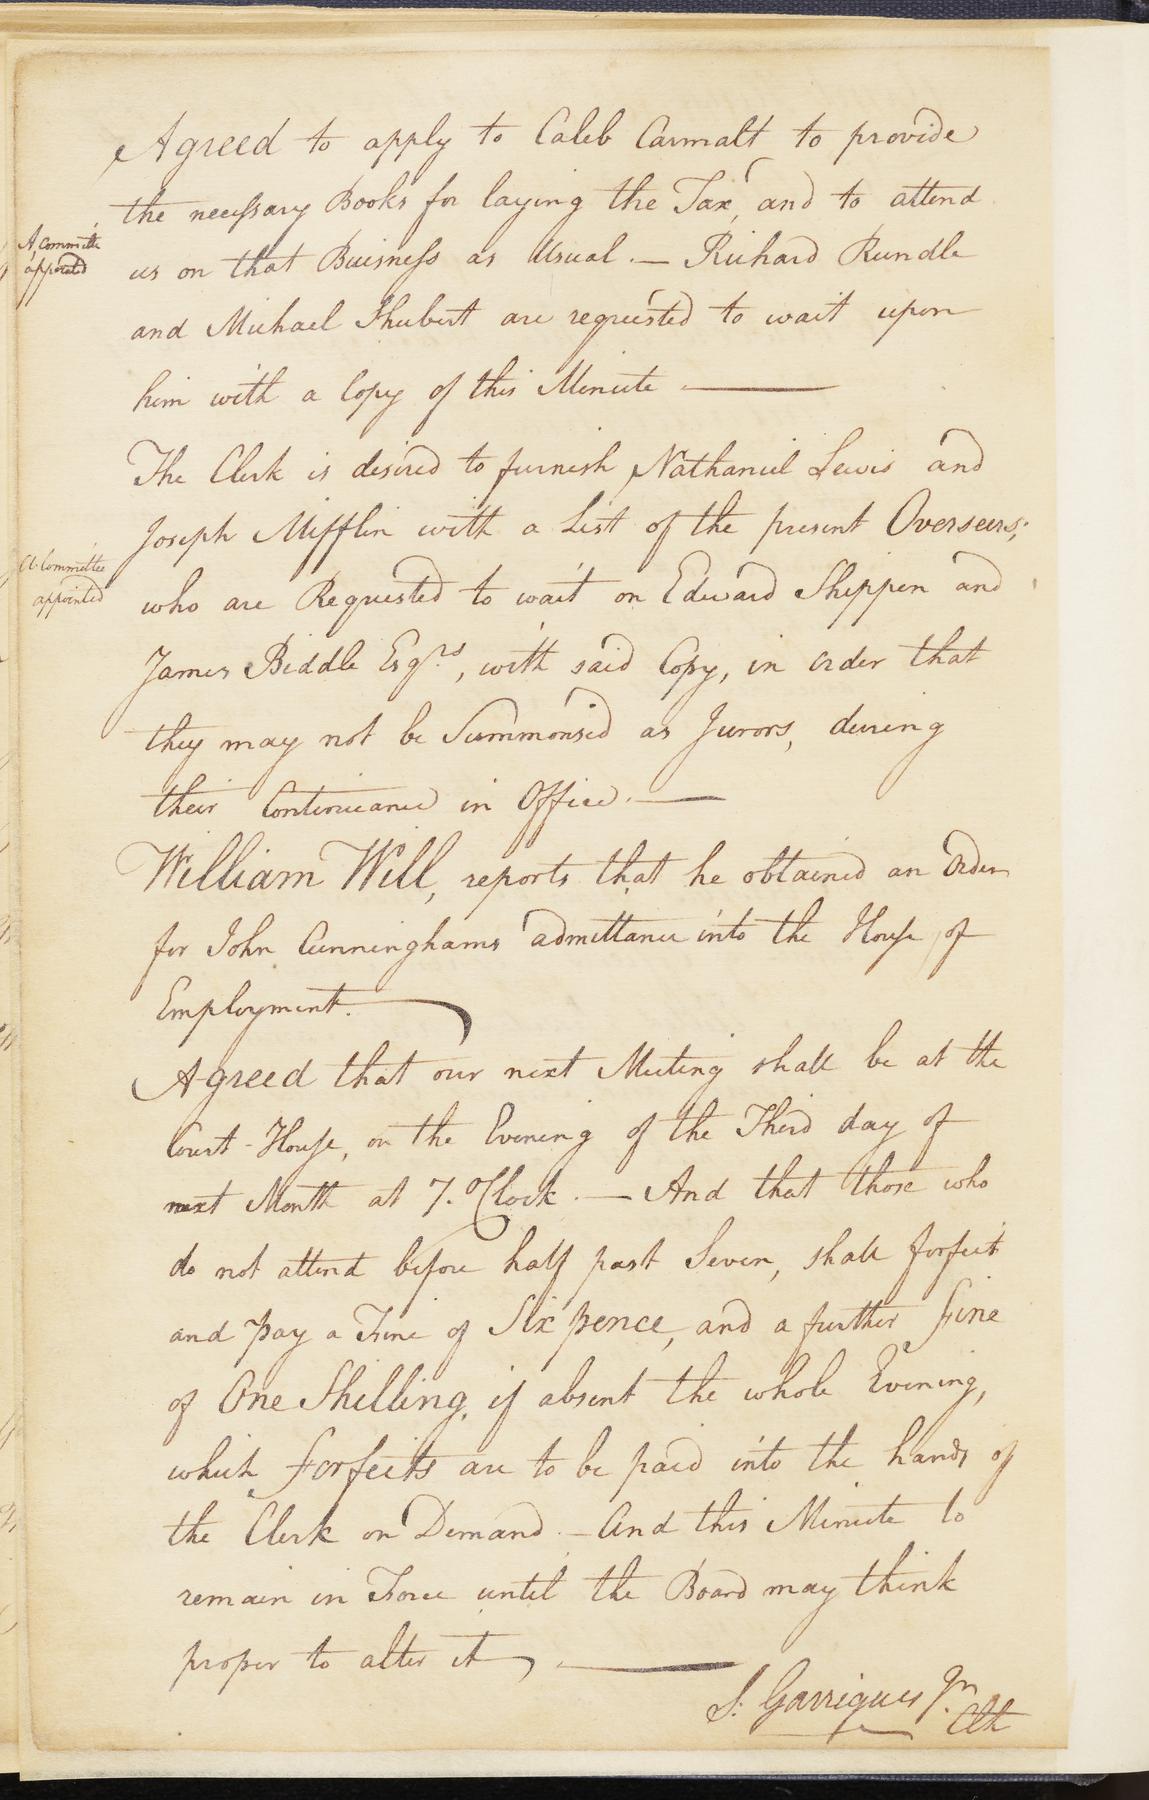 Agreed to apply to Caleb Carmalt to provide
the necessary Books for laying the Tax, and to attend
A Committee
appointed
us on that Buisness as Usual. — Richard Rundle
and Michael Shubert are requested to wait upon
him with a Copy of this Minute —
The Clerk is desired to furnish Nathaniel Lewis and
Joseph Mifflin with a List of the present Overseers;
A Committee
appointed
who are Requested to wait on Edward Shippen and
James Biddle Esqrs, with said Copy, in order that
they may not be Summonsed as Jurors, during
their Continuance in Office. —
William Will, reports that he obtained an Order
for John Cunninghams admittance into the House of
Employment.
Agreed that our next Meeting shall be at the
Court-House, on the Evening of the Third day of
next Month at 7. OClock. — And that those who
do not attend before half past Seven, shall forfeit
and Pay a Fine of Six pence, and a further Fine
of One Shilling, if absent the whole Evening,
which forfeits are to be paid into the hands of
the Clerk on Demand — And this Minute to
remain in Force until the Board may think
proper to alter it, —
S. Garrigues Jr. Clk